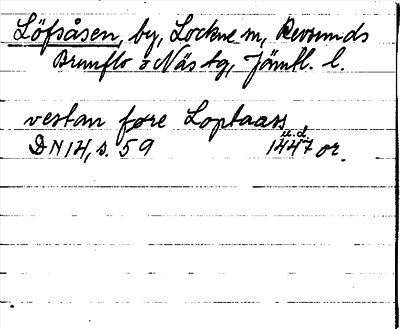 Löfsåsen, by, Lockne sn, Revsunds
Brunflo o Näs tg, Jämtl. l.
vestan fore Loptaass,
u.d.
DN 14, s. 59 1447 or.